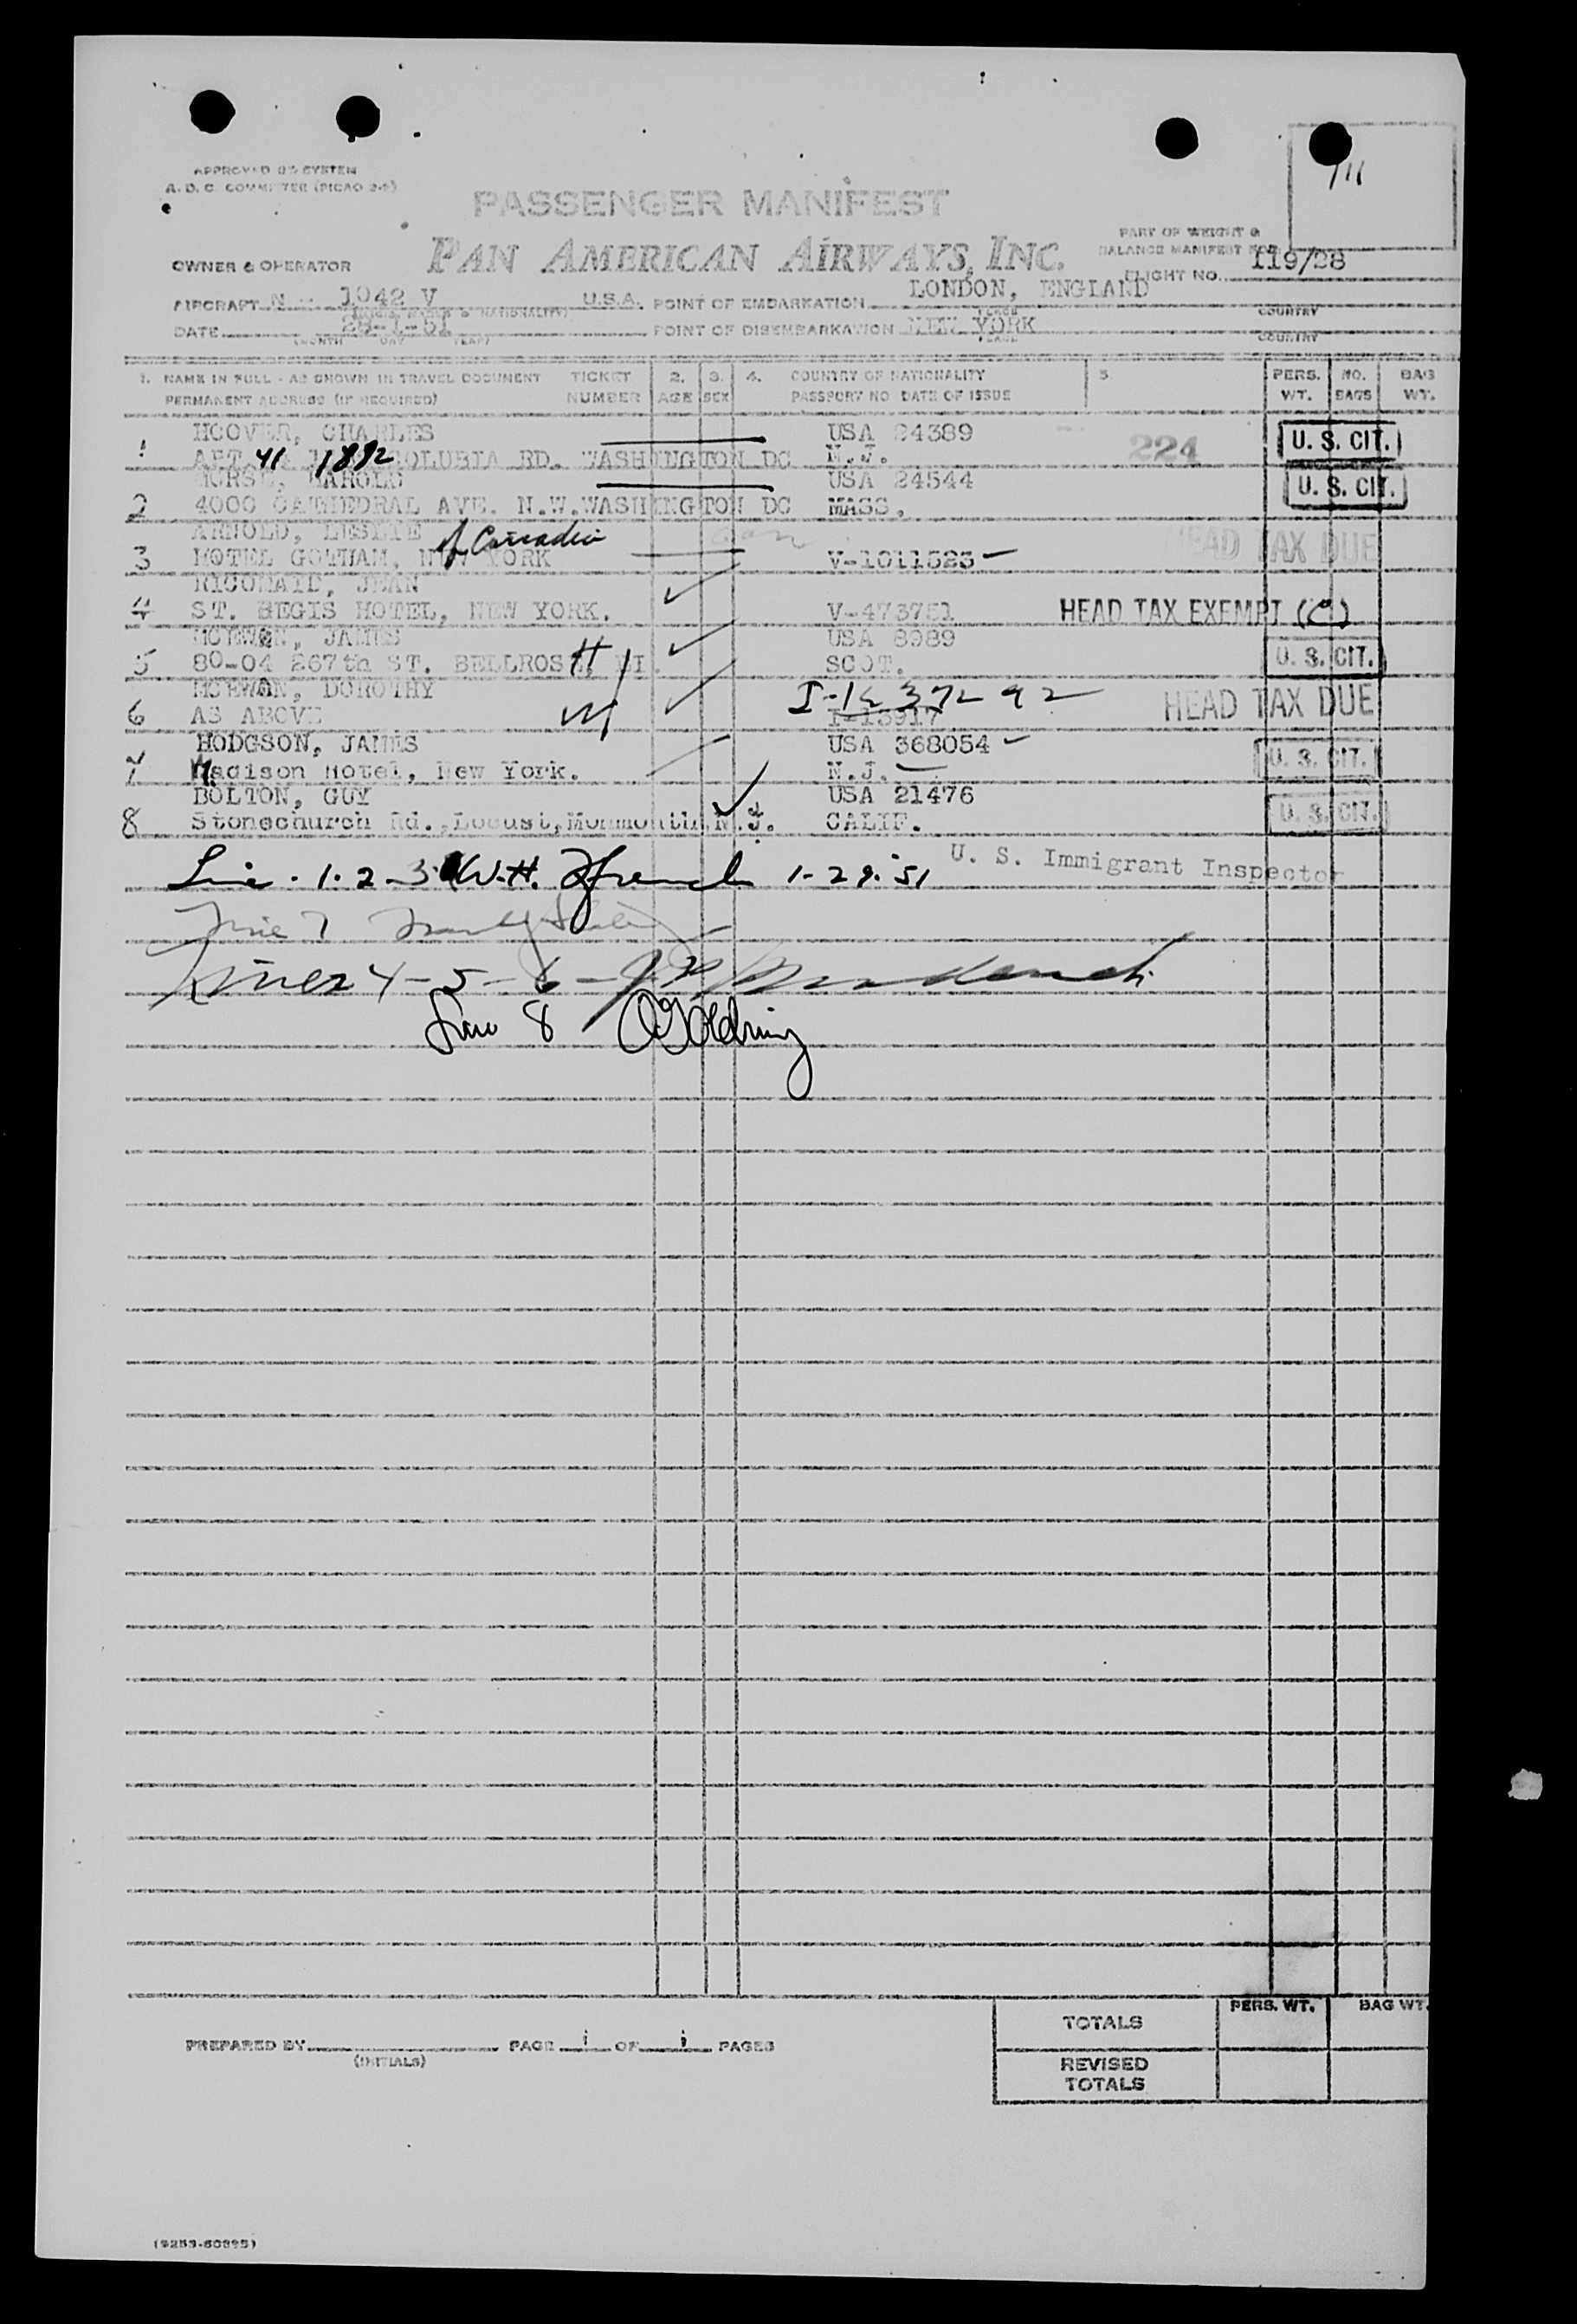 APPROVED BY SYSTEM
A. D. C. COMMITTEE (PICAO 2-2)
711
PASSENGER MANIFEST
PAN AMERICAN AIRWAYS, INC.
PART OF WEIGHT &
BALANCE MANIFEST FOR
FLIGHT NO. 119/28
OWNER & OPERATOR
AIRCRAFT N - 1042 V U.S.A. POINT OF EMBARKATION LONDON, ENGLAND
PLACE COUNTRY
DATE 28-1-51 POINT OF DISEMBARKATION NEW YORK
(MONTH DAY YEAR) PLACE COUNTRY
1. NAME IN FULL - AS SHOWN IN TRAVEL DOCUMENT TICKET 2. 3. 4. COUNTRY OF NATIONALITY 5 PERS. NO. BAG
PERMANENT ADDRESS (IF REQUIRED) NUMBER AGE SEX PASSPORT NO. DATE OF ISSUE WT. BAGS WT.
HOOVER, CHARLES USA 24389
1 APT. 41 1882 COLUBIA RD. WASHINGTON DC N.J. 224 U. S. CIT.
MORSE, HAROLD USA 24544
2 4000 CATHEDRAL AVE. N.W. WASHINGTON DC MASS. U. S. CIT.
ARNOLD, LESLIE
3 HOTEL GOTHAM, NEW YORK V-1011523 HEAD TAX DUE
JEAN
4 ST. REGIS HOTEL, NEW YORK. V-473751 HEAD TAX EXEMPT (C)
MCEWAN, JAMES USA 8989
5 80-04 267th ST. BELLROSE, LI. SCOT. U. S. CIT.
MCEWAN, DOROTHY I-1637292
6 AS ABOVE I-13917 HEAD TAX DUE
HODGSON, JAMES USA 368054
7 Madison Hotel, New York. N.J. U. S. CIT.
BOLTON, GUY USA 21476
8 Stonechurch Rd., Locust, Monmouth, N.J. CALIF. U. S. CIT.
Line. 1. 2 - 3. W. H. French 1-29-51 U. S. Immigrant Inspector
Line 7
Lines 4 - 5 - 6 -
Line 8 Goldring
TOTALS PERS. WT. BAG WT.
REVISED
TOTALS
PREPARED BY PAGE 1 OF 1 PAGES
(INITIALS)